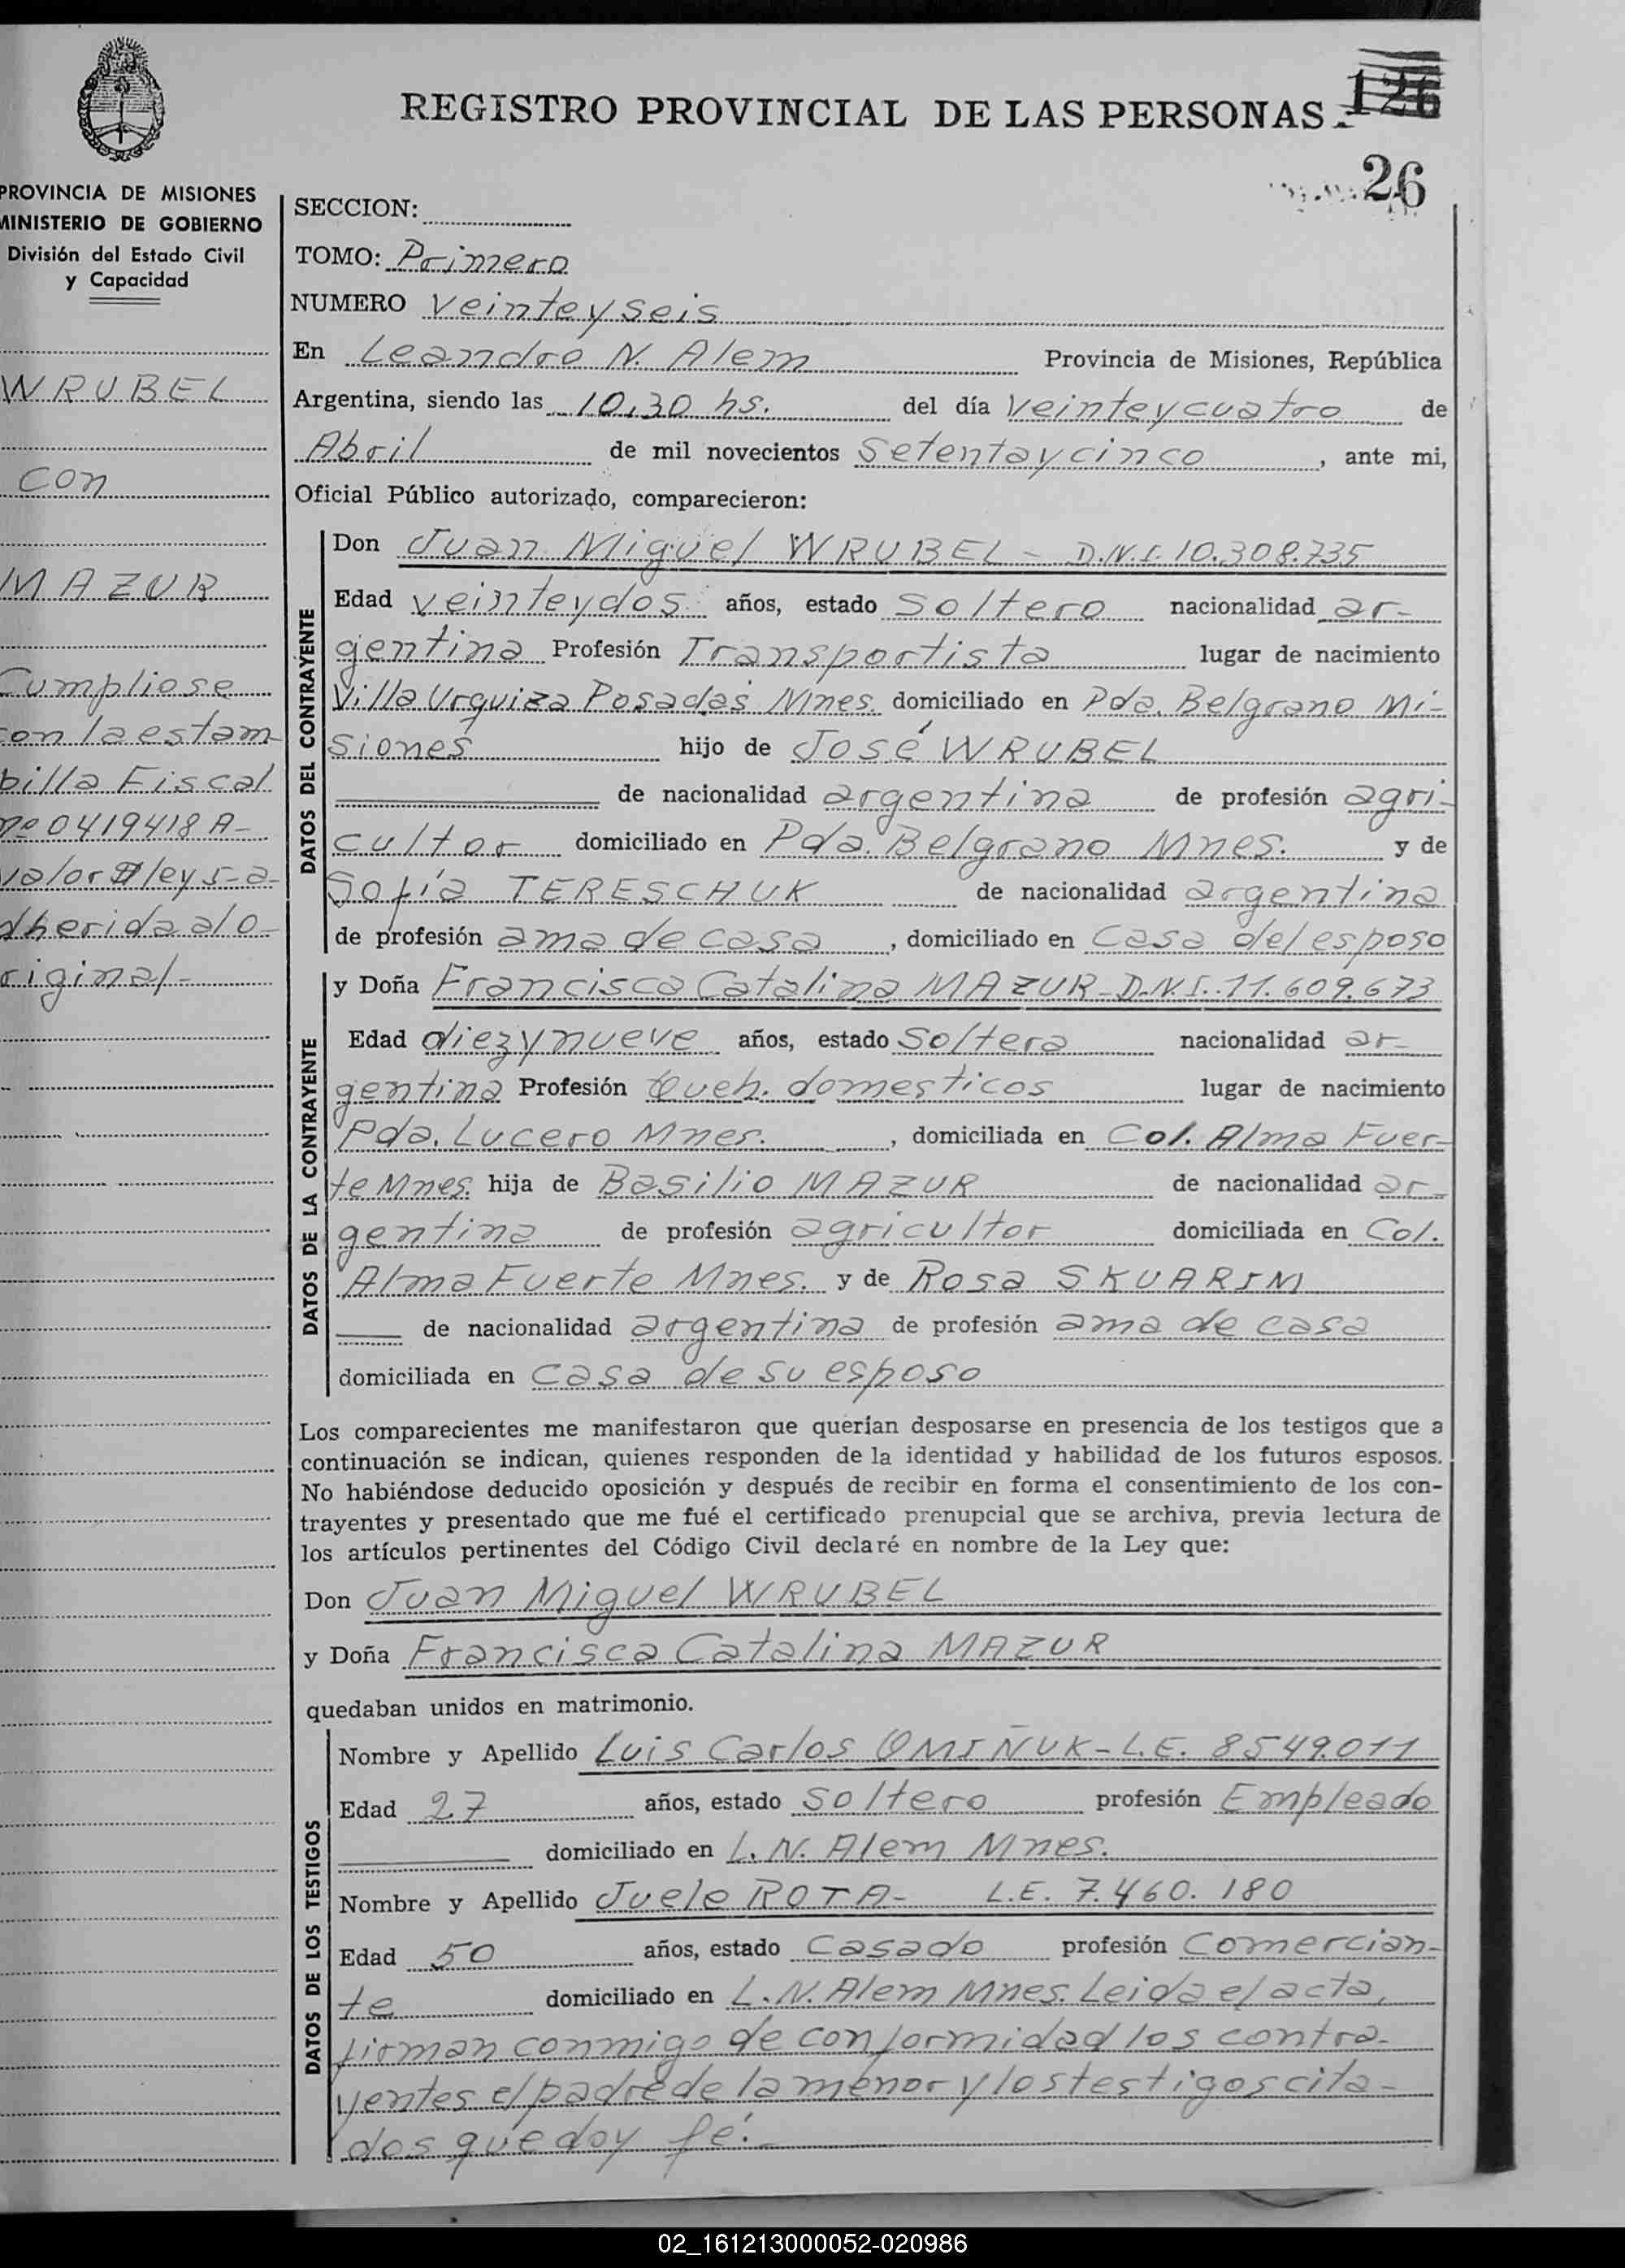 REGISTRO PROVINCIAL DE LAS PERSONAS.
126
26
PROVINCIA DE MISIONES
MINISTERIO DE GOBIERNO
División del Estado Civil
y Capacidad
WRUBEL
con
MAZUR
Cumpliose
con la estam-
pilla Fiscal
nº 0419418 A-
valor $ ley 5-a-
dherida al o-
riginal-
SECCION:
TOMO: Primero
NUMERO veinteyseis
En Leandro N. Alem Provincia de Misiones, República
Argentina, siendo las 10,30 hs. del día veinteycuatro de
Abril de mil novecientos setentaycinco, ante mi,
Oficial Público autorizado, comparecieron:
DATOS DEL CONTRAYENTE
Don Juan Miguel WRUBEL - D.N.I. 10.308.735
Edad veinteydos años, estado soltero nacionalidad ar-
gentina Profesión Transportista lugar de nacimiento
Villa Urquiza Posadas Mnes. domiciliado en Pda. Belgrano Mi-
siones hijo de José WRUBEL
de nacionalidad argentina de profesión agri-
cultor domiciliado en Pda. Belgrano Mnes. y de
Sofía TERESCHUK de nacionalidad argentina
de profesión ama de casa, domiciliado en casa del esposo
DATOS DE LA CONTRAYENTE
y Doña Francisca Catalina MAZUR - D.N.I. 11.609.673
Edad diezynueve años, estado soltera nacionalidad ar-
gentina Profesión Queh. domesticos lugar de nacimiento
Pda. Lucero Mnes., domiciliada en Col. Alma Fuer-
te Mnes. hija de Basilio MAZUR de nacionalidad ar-
gentina de profesión agricultor domiciliada en Col.
Alma Fuerte Mnes. y de Rosa SKUARIM
de nacionalidad argentina de profesión ama de casa
domiciliada en casa de su esposo
Los comparecientes me manifestaron que querían desposarse en presencia de los testigos que a
continuación se indican, quienes responden de la identidad y habilidad de los futuros esposos.
No habiéndose deducido oposición y después de recibir en forma el consentimiento de los con-
trayentes y presentado que me fué el certificado prenupcial que se archiva, previa lectura de
los artículos pertinentes del Código Civil declaré en nombre de la Ley que:
Don Juan Miguel WRUBEL
y Doña Francisca Catalina MAZUR
quedaban unidos en matrimonio.
DATOS DE LOS TESTIGOS
Nombre y Apellido Luis Carlos OMIÑUK - L.E. 8549.011
Edad 27 años, estado soltero profesión Empleado
domiciliado en L. N. Alem Mnes.
Nombre y Apellido Juele ROTA - L.E. 7.460.180
Edad 50 años, estado casado profesión Comercian-
te domiciliado en L. N. Alem Mnes. Leida el acta,
firman conmigo de conformidad los contra-
yentes el padre de la menor y los testigos cita-
dos que doy fé.-
02_161213000052-020986